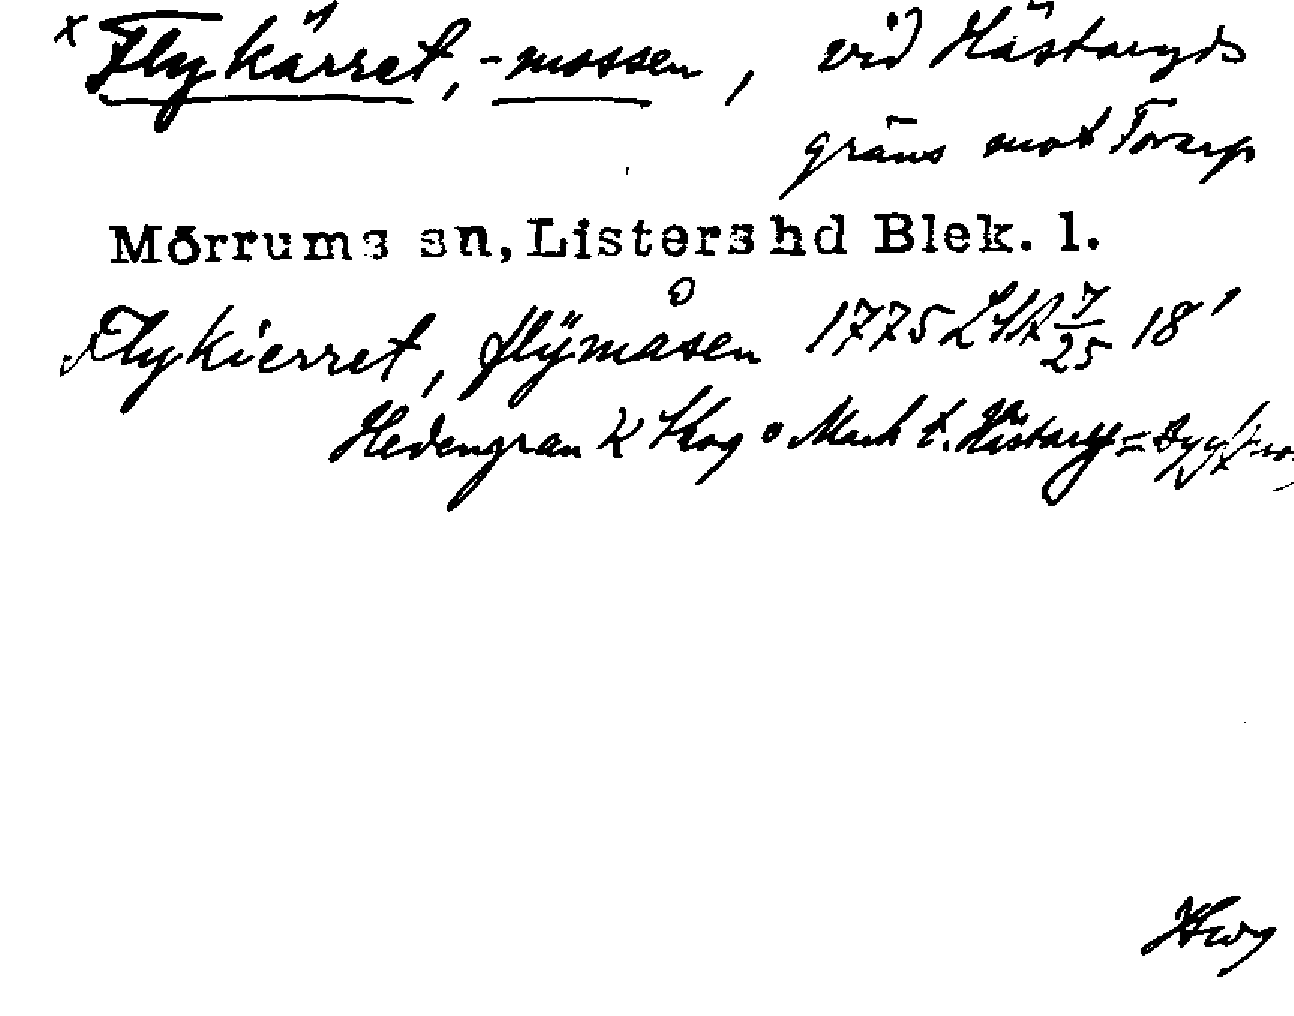 x Flykärret, -mossen, vid Hästaryds
gräns mot Torarp
Mörrums sn, Listers hd Blek. l.
Flykierret, flÿmåsen 1775 LSA 7/25 18'
Hedengran K Skog o Mark t. Hästary=